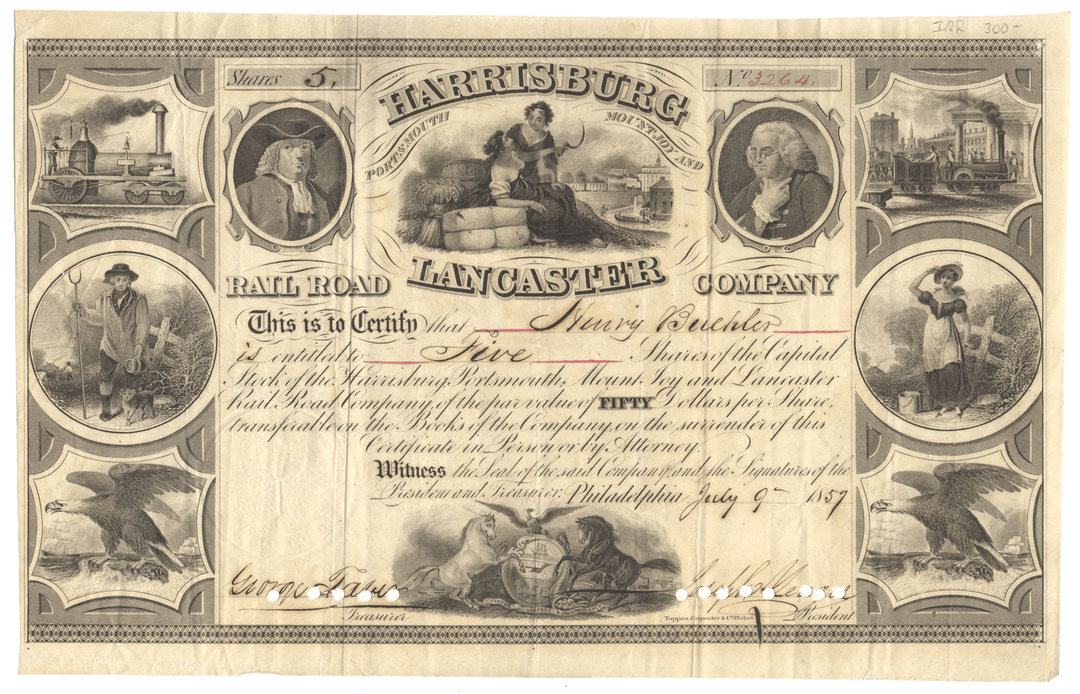 IRR 300-
Shares 5,
No 3264.
HARRISBURG
PORTSMOUTH
MOUNT JOY AND
LANCASTER
RAIL ROAD COMPANY
This is to Certify that Henry Buehler
is entitled to Five Shares of the Capital
Stock of the Harrisburg, Portsmouth, Mount Joy and Lancaster
Rail Road Company, of the par value of FIFTY Dollars per Share,
transferable on the Books of the Company, on the surrender of this
Certificate in Person or by Attorney.
Witness the Seal of the said Company, and the Signatures of the
President and Treasurer. Philadelphia July 9 1857
George Taber
Treasurer
Tappan, Carpenter & Co. Philad.
President